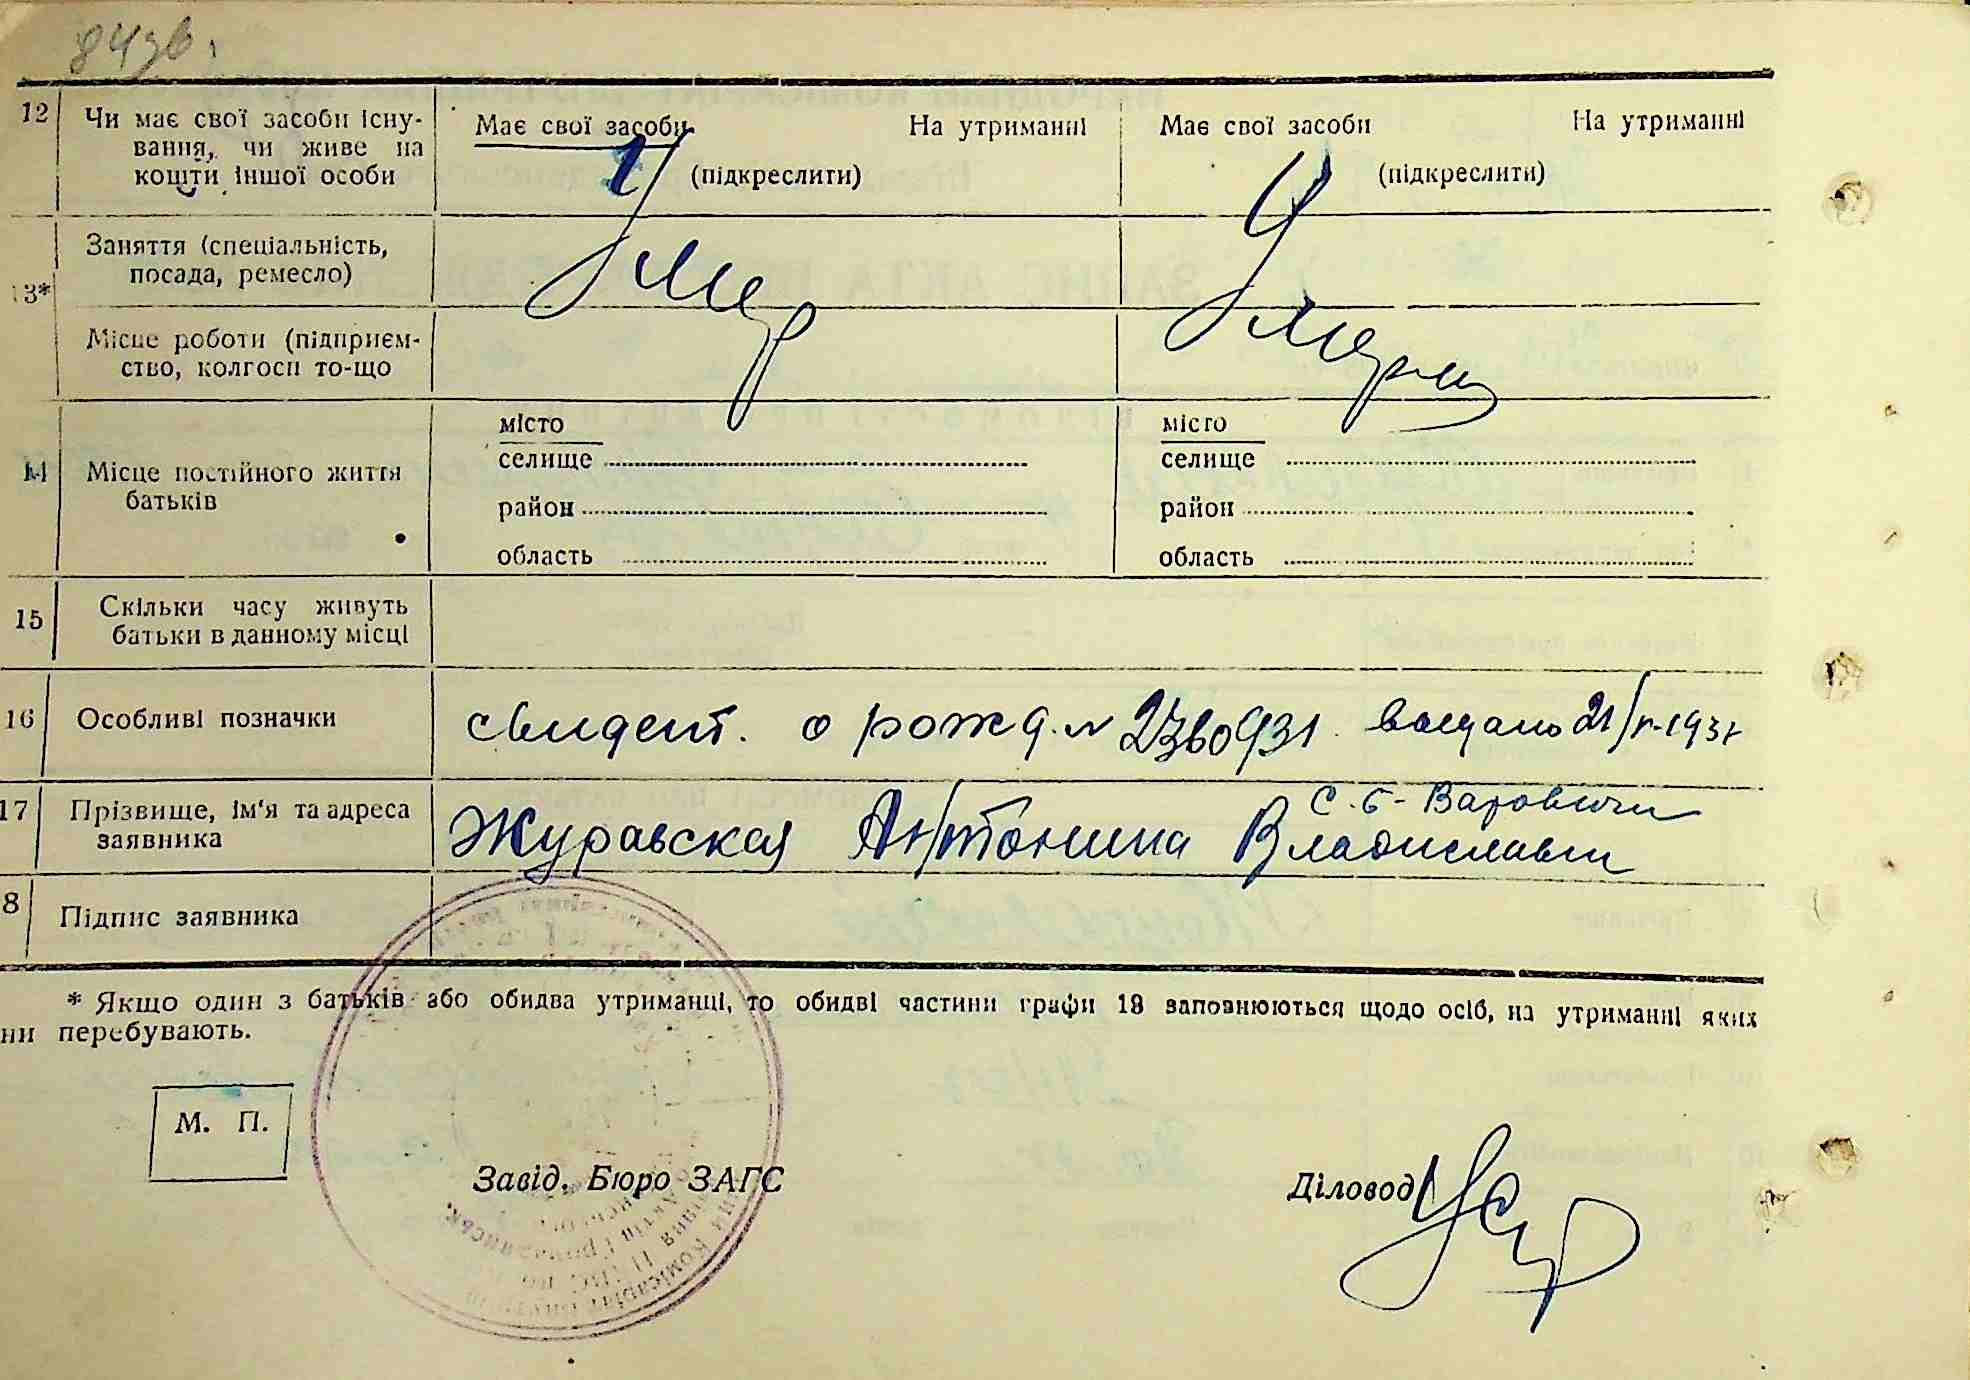 84зв.
12 Чи має свої засоби існу- Має свої засоби На утриманні Має свої засоби На утриманні
вання, чи живе на
кошти іншої особи (підкреслити) (підкреслити)
13* Заняття (спеціальність,
посада, ремесло) Умер Умерли
Місце роботи (підприєм-
ство, колгосп то-що
14 Місце постійного життя
батьків
місто місто
селище селище
район район
область область
15 Скільки часу живуть
батьки в данному місці
16 Особливі позначки свидет. о рожд. № выдано 21/V-193
17 Прізвище, ім'я та адреса С. Б-
заявника Журавская Антонина Владиславы
8 Підпис заявника
* Якщо один з батьків або обидва утриманці, то обидві частини графи 13 заповнюються щодо осіб, на утриманні яких
ни перебувають.
М. П.
Завід. Бюро ЗАГС Діловод